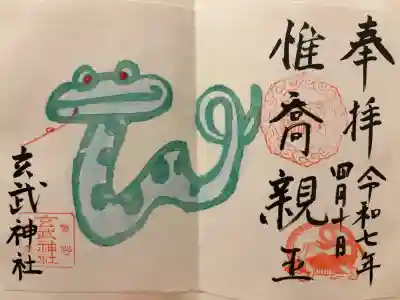 奉拝
令和七年
四月十日
惟喬親王
玄武神社
玄武神社